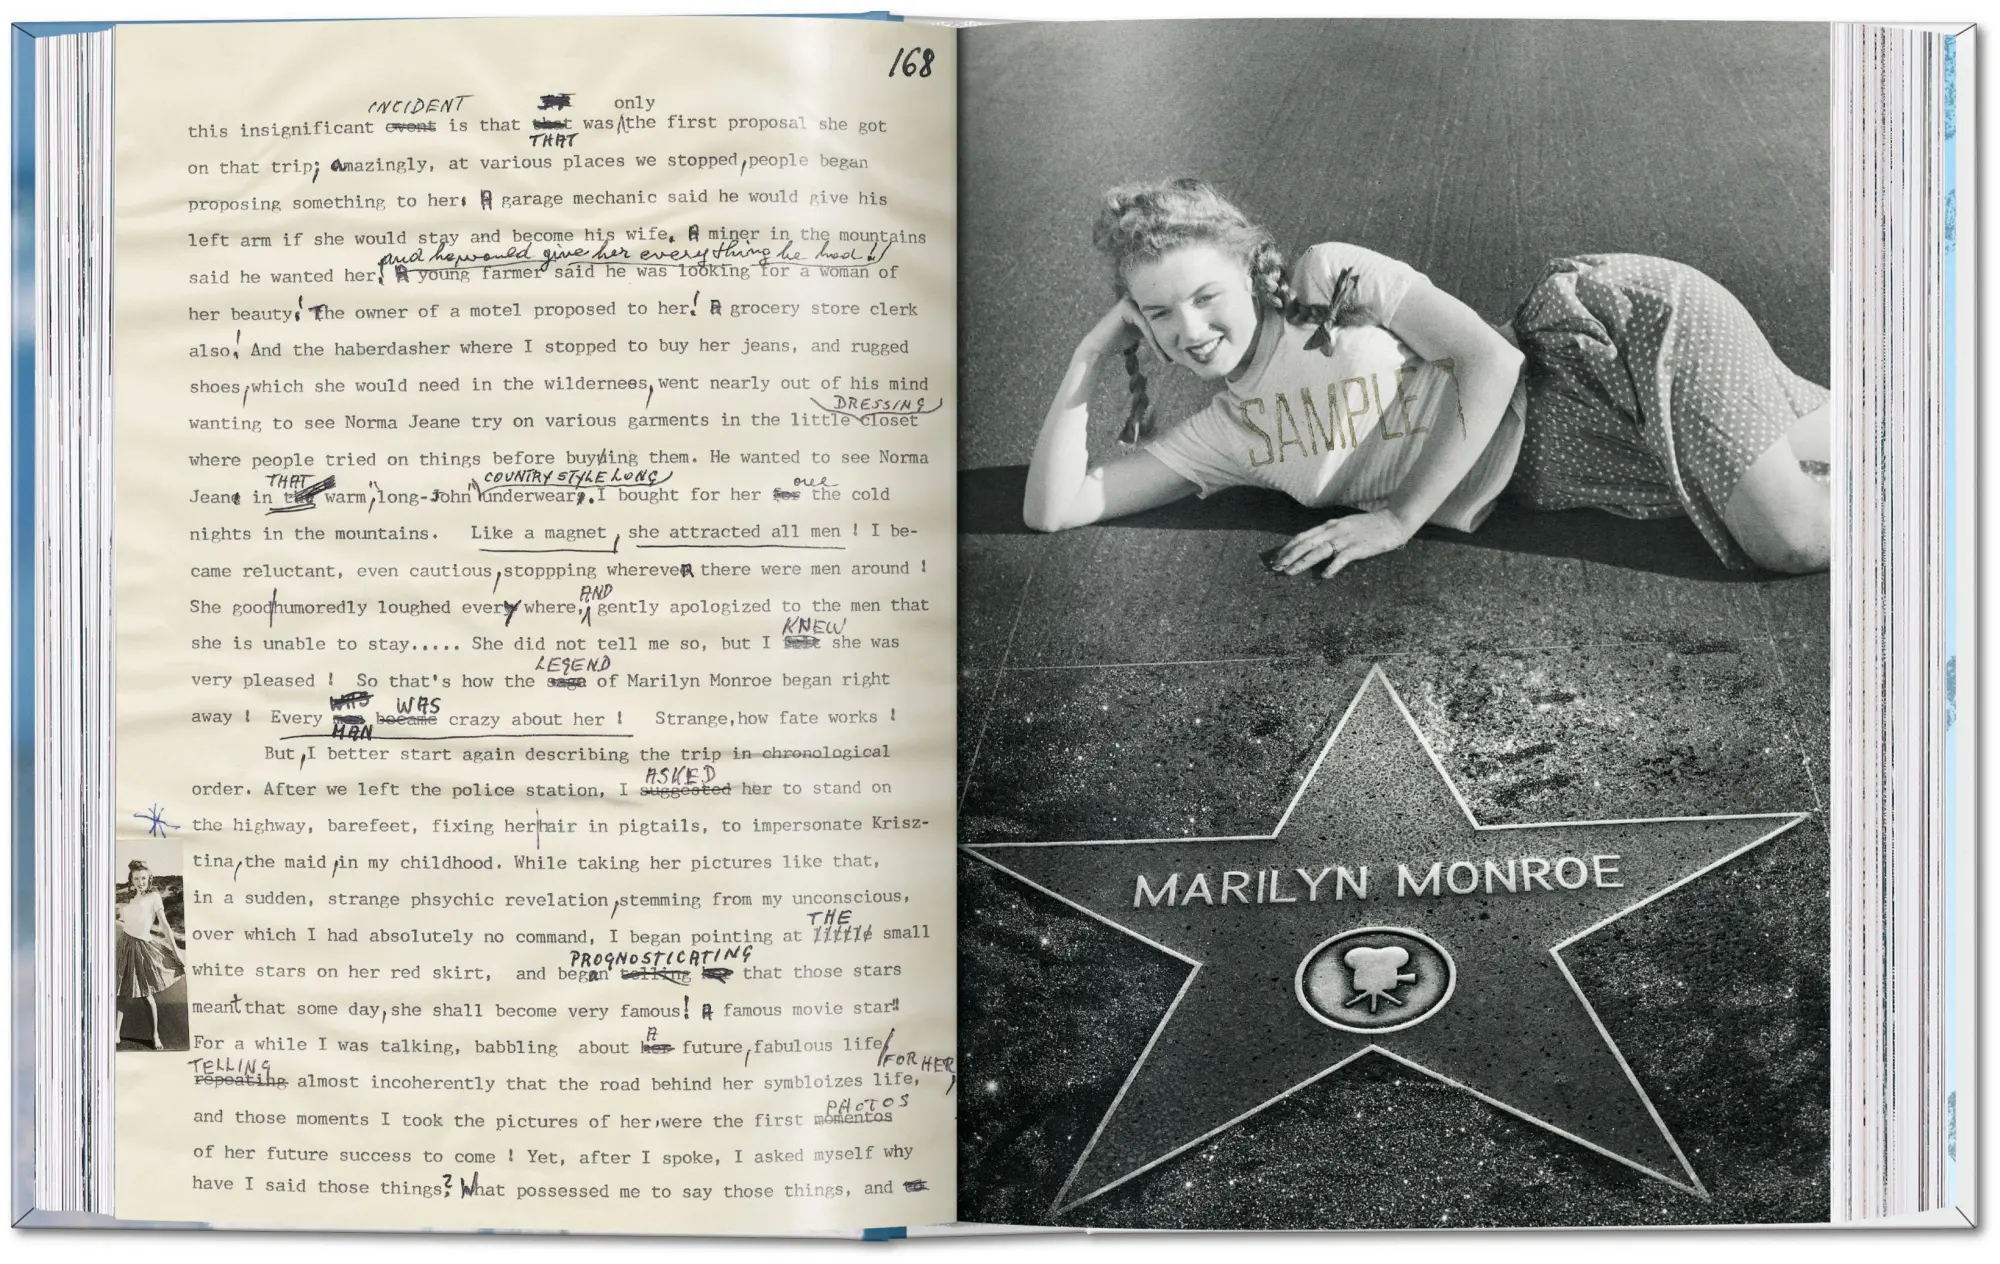 168
INCIDENT only
this insignificant event is that that was the first proposal she got
THAT
on that trip; Amazingly, at various places we stopped, people began
proposing something to her. A garage mechanic said he would give his
left arm if she would stay and become his wife. A miner in the mountains
and he would give her everything he had!!
said he wanted her! A young farmer said he was looking for a woman of
her beauty! The owner of a motel proposed to her! A grocery store clerk
also! And the haberdasher where I stopped to buy her jeans, and rugged
shoes, which she would need in the wildernees, went nearly out of his mind
DRESSING
wanting to see Norma Jeane try on various garments in the little closet
where people tried on things before buying them. He wanted to see Norma
THAT COUNTRY STYLE LONG one
Jeane in the warm, "long-John" underwear, I bought for her for the cold
nights in the mountains. Like a magnet, she attracted all men ! I be-
came reluctant, even cautious, stoppping whereveR there were men around !
AND
She good humoredly loughed every where, gently apologized to the men that
KNEW
she is unable to stay..... She did not tell me so, but I she was
LEGEND
very pleased ! So that's how the saga of Marilyn Monroe began right
WAS WAS
away ! Every became crazy about her ! Strange, how fate works !
MAN
But, I better start again describing the trip in chronological
ASKED
order. After we left the police station, I suggested her to stand on
the highway, barefeet, fixing her hair in pigtails, to impersonate Krisz-
tina, the maid, in my childhood. While taking her pictures like that,
in a sudden, strange phsychic revelation, stemming from my unconscious,
THE
over which I had absolutely no command, I began pointing at little small
PROGNOSTICATING
white stars on her red skirt, and began telling her that those stars
meant that some day, she shall become very famous! A famous movie star!!
A
For a while I was talking, babbling about her future, fabulous life
TELLING FOR HER,
repeating almost incoherently that the road behind her symbloizes life,
PHOTOS
and those moments I took the pictures of her, were the first momentos
of her future success to come ! Yet, after I spoke, I asked myself why
have I said those things? What possessed me to say those things, and
SAMPLE
MARILYN MONROE